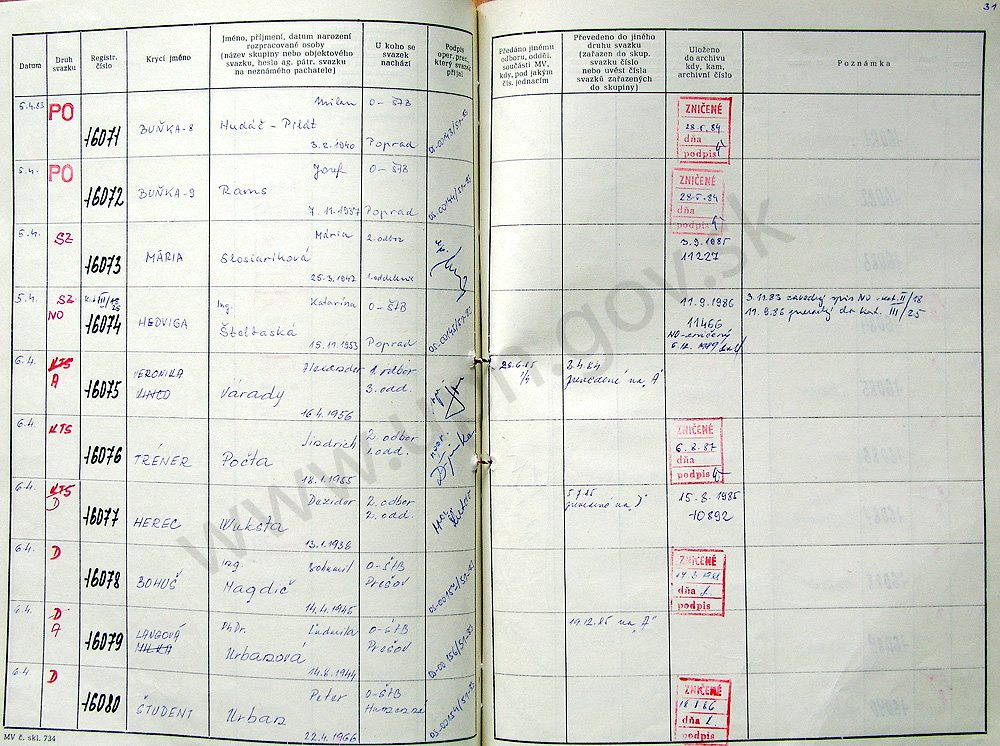 31
Datum
Druh svazku
Registr. číslo
Krycí jméno
Jméno, příjmení, datum narození
rozpracované osoby
(název skupiny nebo objektového
svazku, heslo ag. pátr. svazku
na neznámého pachatele)
U koho se
svazek
nachází
Podpis
oper. prac.,
který svazek
přijal
Předáno jinému
odboru, odděl.
součásti MV,
kdy, pod jakým
čís. jednacím
Převedeno do jiného
druhu svazku
(zařazen do skup.
svazku číslo
nebo uvést čísla
svazků zařazených
do skupiny)
Uloženo
do archivu
kdy, kam,
archivní číslo
Poznámka
5.4.83 PO 16071 BUŇKA-8 Milan Hudáč - Pilát 3.2.1940 O-ŠTB Poprad
ZNIČENÉ
28.5.84
dňa
podpis
5.4. PO 16072 BUŇKA-9 Jozef Rams 7.11.1937 O-ŠTB Poprad
ZNIČENÉ
28.5.84
dňa
podpis
5.4. SZ 16073 MÁRIA Mária Slosiariková 25.3.1947 2.odbor 1.oddelenie
3.9.1985
11227
5.4. SZ NO 16074 HEDVIGA Ing. Katarína 15.11.1953 O-ŠTB Poprad
11.9.1986
11466
3.11.83 zavedený spis NO-kat.II/18
11.9.86 do kat. III/25
6.4. KTS A 16075 VERONIKA Várady 16.4.1956 1.odbor 3.odd.
2.4.84
prevedené na "A"
6.4. KTS 16076 TRÉNER Jindrich Počta 18.1.1955 2.odbor 1.odd.
ZNIČENÉ
6.2.87
dňa
podpis
6.4. KTS D 16077 HEREC Dezider Wuksta 13.1.1936 2.odbor 2.odd.
15.8.1985
10892
6.4. D 16078 BOHUŠ Ing. Bohumil Magdič 14.4.1945 O-ŠTB Prešov
ZNIČENÉ
dňa
podpis
6.4. D A 16079 LANGOVÁ MILKA PhDr. Ľudmila Urbanová 14.8.1944 O-ŠTB Prešov
19.12.85 na "A"
6.4. D 16080 ŠTUDENT Peter Urban 22.4.1966 O-ŠTB Humenné
ZNIČENÉ
dňa
podpis
MV č. skl. 734
www.upn.gov.sk